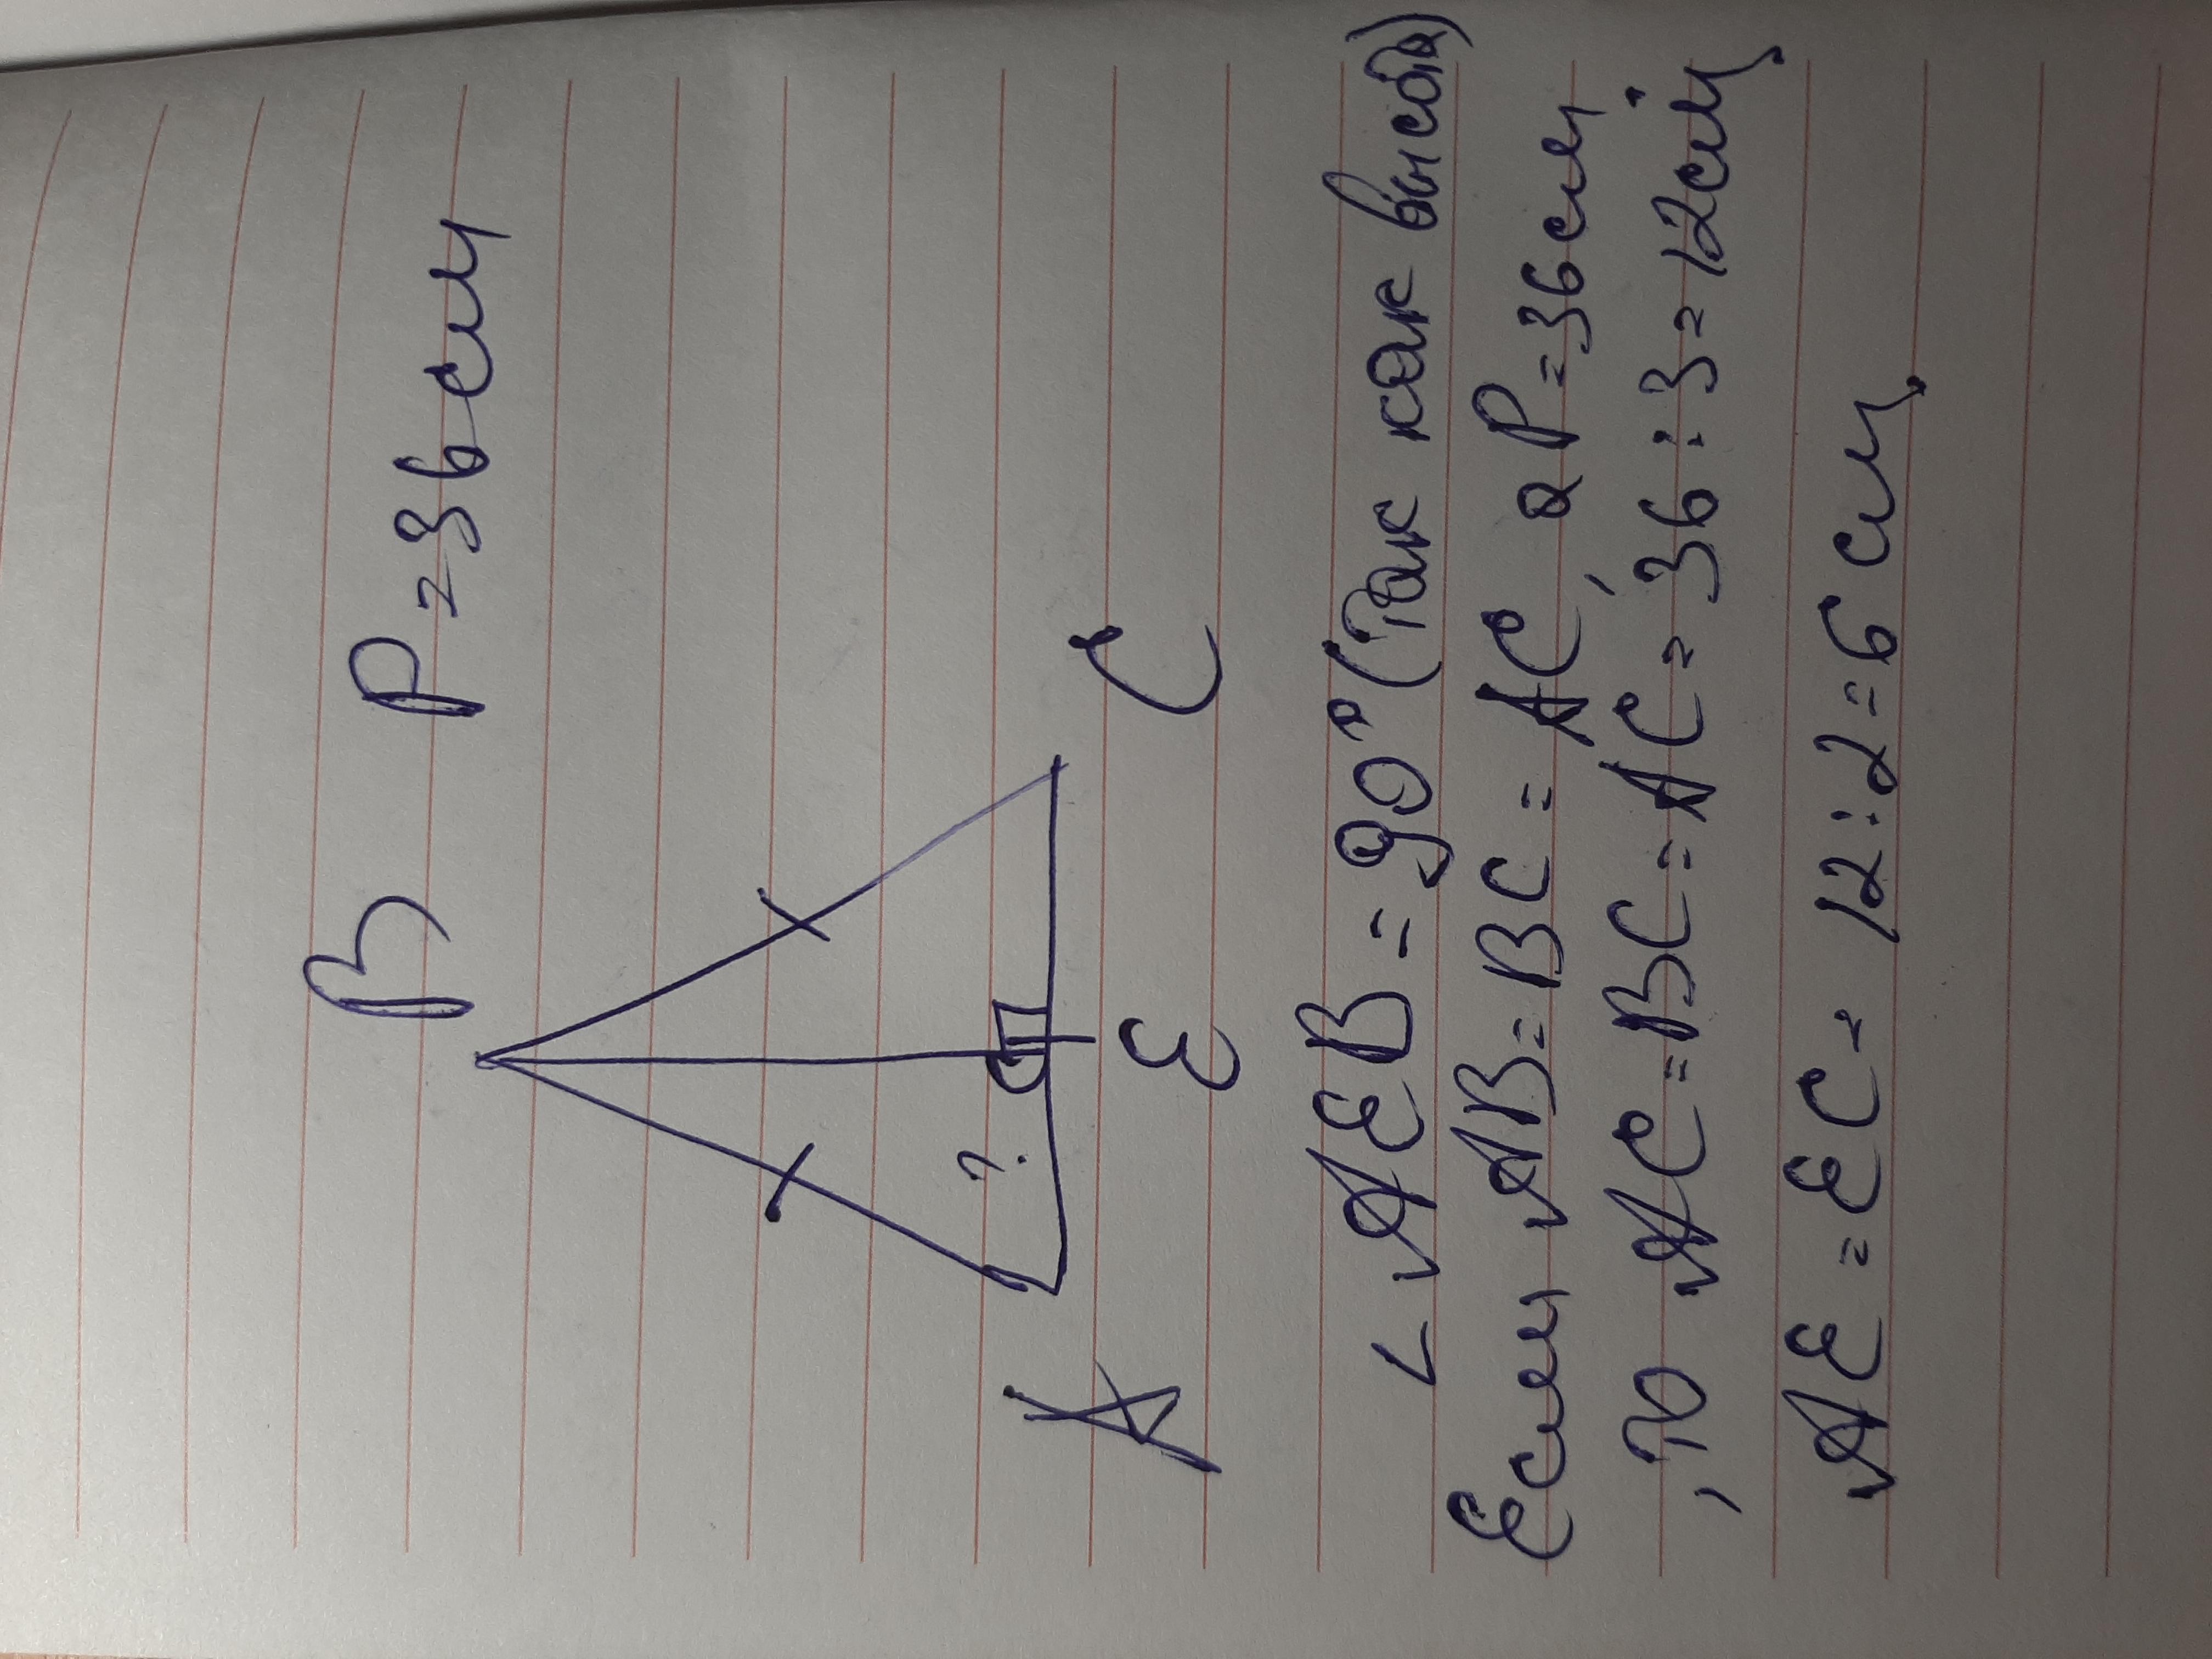 B P=36 см
?
A E C
∠AEB=90°(так как высота)
Если AB=BC=AC, а P=36 см
, то AC=BC=AC=36:3=12см,
AE=EC=12:2=6 см,